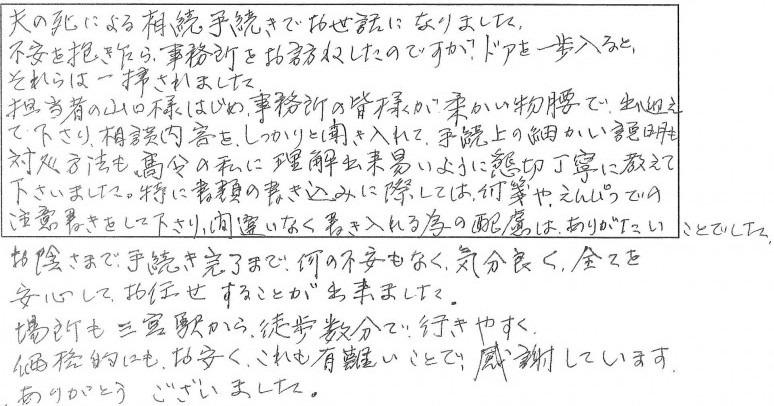 夫の死による相続手続きでお世話になりました。
不安を抱き乍ら、事務所をお訪ねしたのですが、ドアを一歩入ると、
それらは一掃されました。
担当者の山口様はじめ、事務所の皆様が柔かい物腰で、出迎え
て下さり、相談内容を、しっかりと聞き入れて、手続上の細かい説明も
対処方法も、高令の私に理解出来易いように懇切丁寧に教えて
下さいました。特に書類の書き込みに際しては、付箋や、えんぴつでの
注意書きをして下さり、間違いなく書き入れる為の配慮は、ありがたいことでした。
お陰さまで、手続き完了まで、何の不安もなく、気分良く、全てを
安心して、お任せすることが出来ました。
場所も三宮駅から、徒歩数分で、行きやすく、
価格的にも、お安く、これも有難いことで、感謝しています。
ありがとうございました。